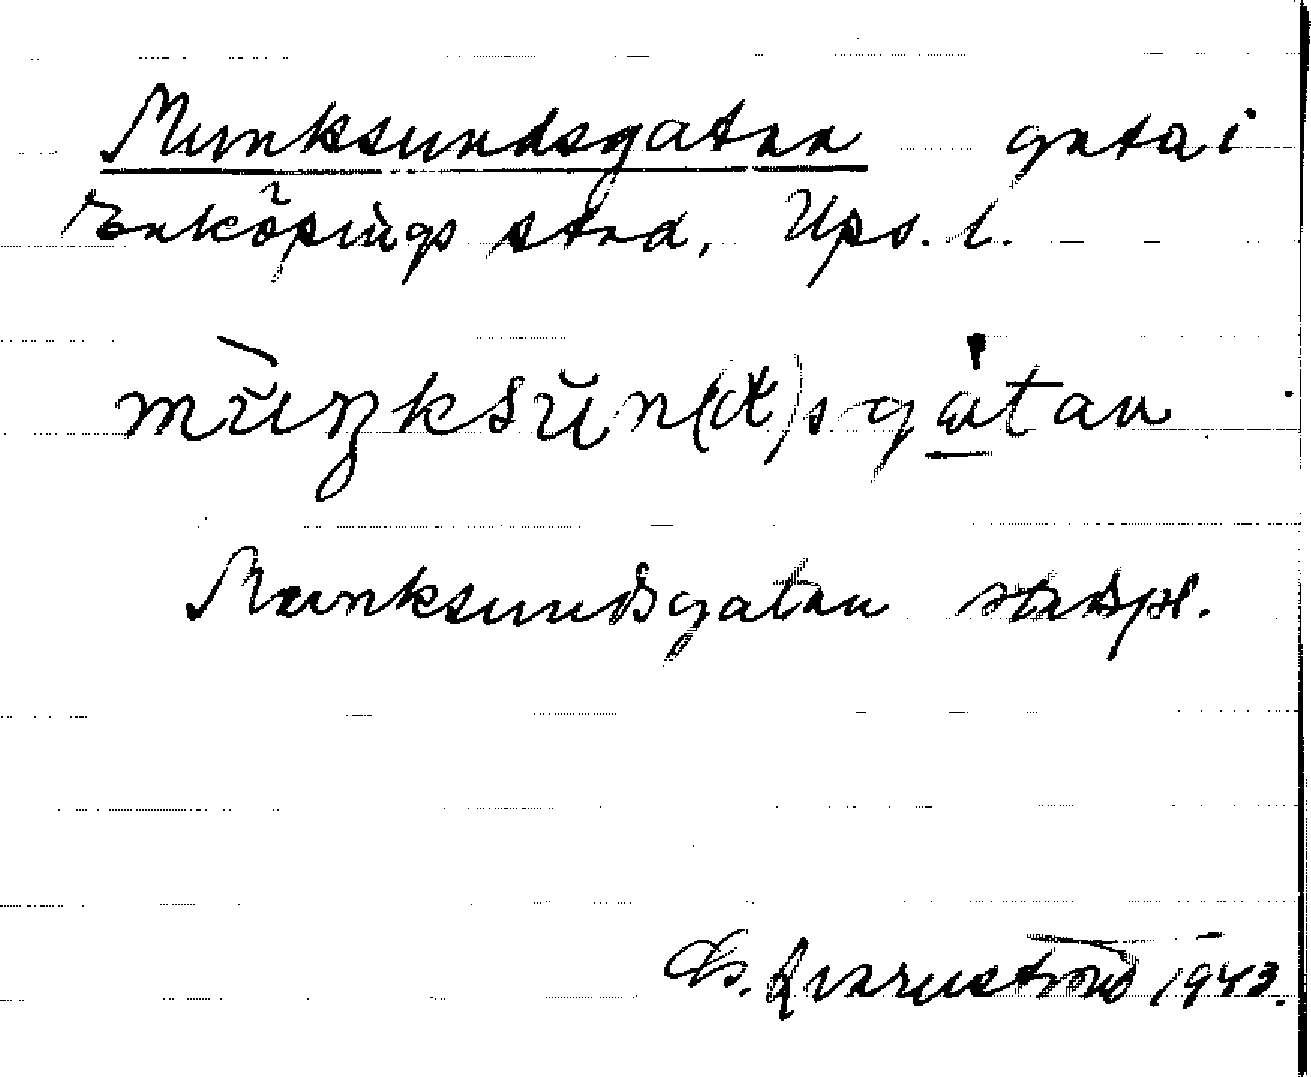 Munksundsgatan gata i
Enköpings stad, Ups. l.
mùŋksŭn(d)sgátan
Munksundsgatan stadspl.
Qvarnström 1943.